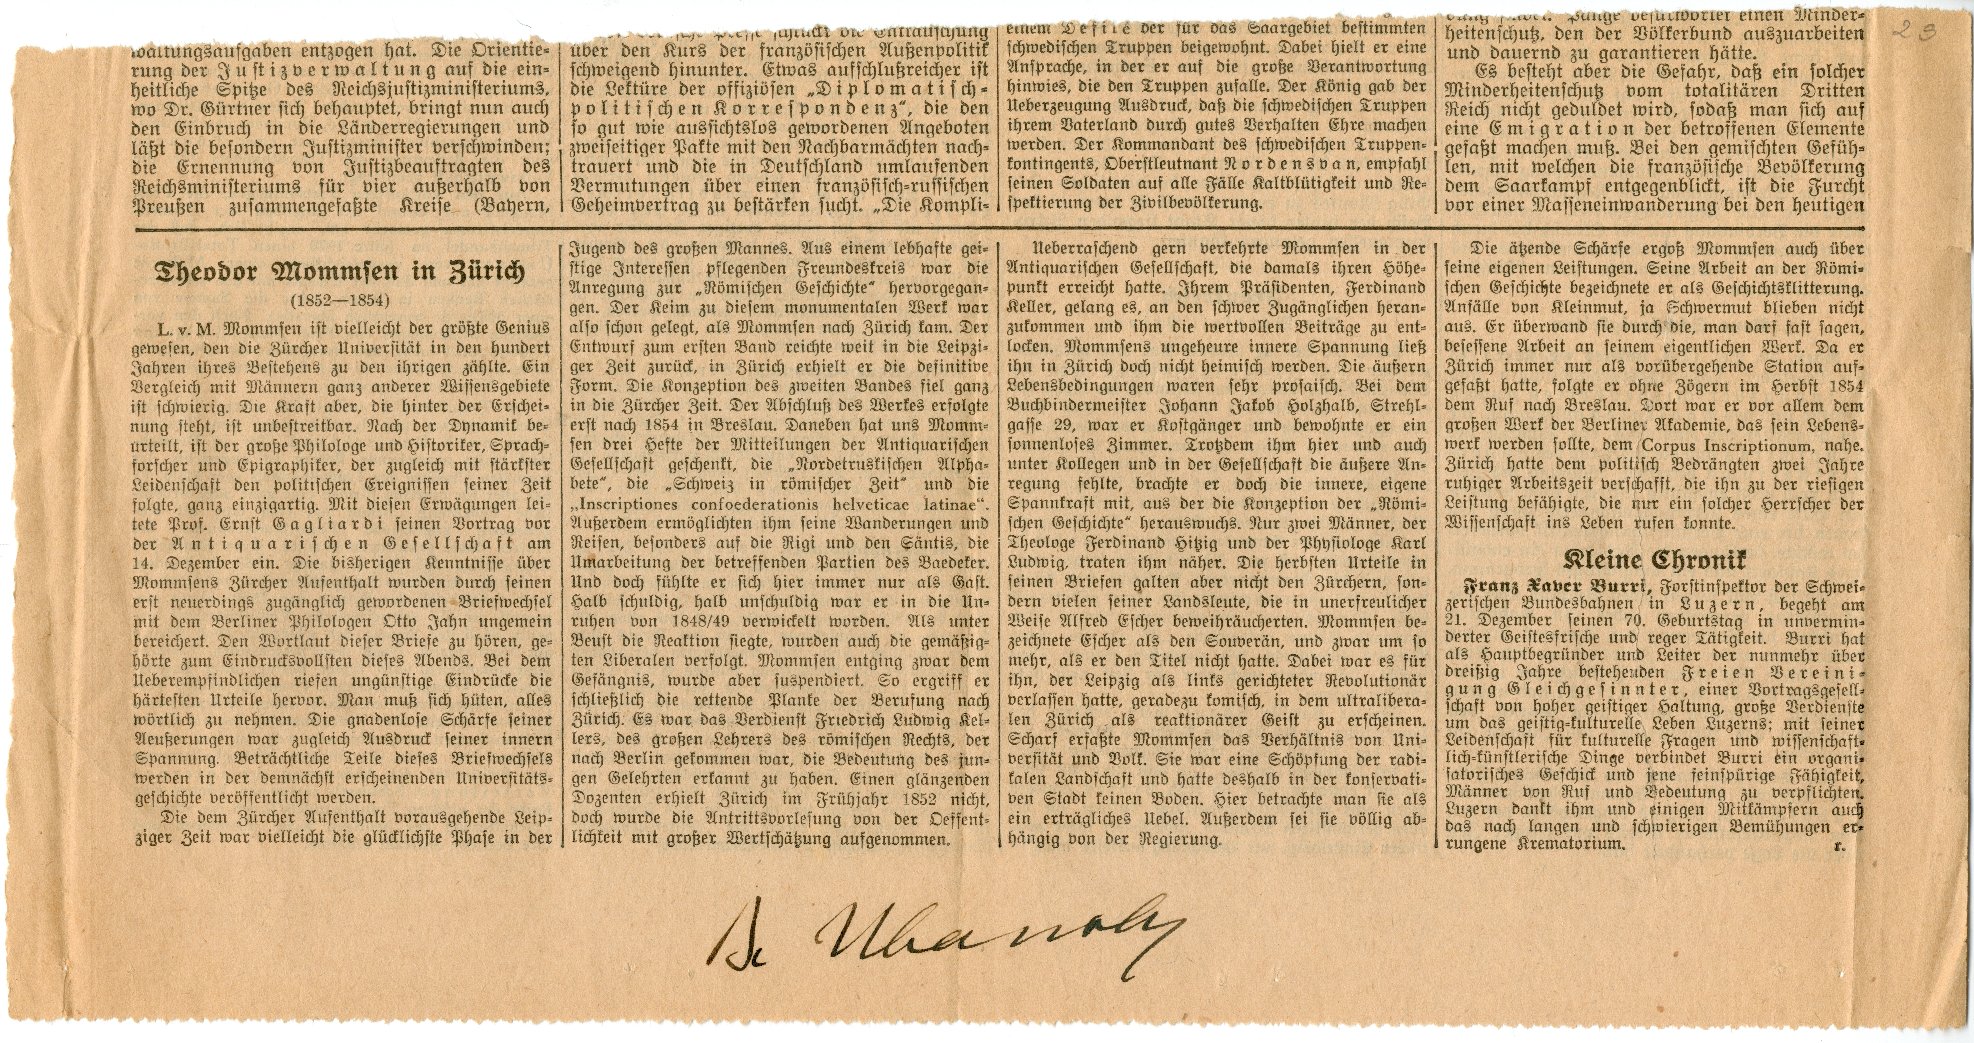 waltungsaufgaben entzogen hat. Die Orientie-
rung der Justizverwaltung auf die ein-
heitliche Spitze des Reichsjustizministeriums,
wo Dr. Gürtner sich behauptet, bringt nun auch
den Einbruch in die Länderregierungen und
läßt die besondern Justizminister verschwinden;
die Ernennung von Justizbeauftragten des
Reichsministeriums für vier außerhalb von
Preußen zusammengefaßte Kreise (Bayern,
über den Kurs der französischen Außenpolitik
schweigend hinunter. Etwas aufschlußreicher ist
die Lektüre der offiziösen „Diplomatisch-
politischen Korrespondenz“, die den
so gut wie aussichtslos gewordenen Angeboten
zweiseitiger Pakte mit den Nachbarmächten nach-
trauert und die in Deutschland umlaufenden
Vermutungen über einen französisch-russischen
Geheimvertrag zu bestärken sucht. „Die Kompli-
einem Defilé der für das Saargebiet bestimmten
schwedischen Truppen beigewohnt. Dabei hielt er eine
Ansprache, in der er auf die große Verantwortung
hinwies, die den Truppen zufalle. Der König gab der
Ueberzeugung Ausdruck, daß die schwedischen Truppen
ihrem Vaterland durch gutes Verhalten Ehre machen
werden. Der Kommandant des schwedischen Truppen-
kontingents, Oberstleutnant Nordensvan, empfahl
seinen Soldaten auf alle Fälle Kaltblütigkeit und Re-
spektierung der Zivilbevölkerung.
Pange befürwortet einen Minder-
heitenschutz, den der Völkerbund auszuarbeiten
und dauernd zu garantieren hätte.
Es besteht aber die Gefahr, daß ein solcher
Minderheitenschutz vom totalitären Dritten
Reich nicht geduldet wird, sodaß man sich auf
eine Emigration der betroffenen Elemente
gefaßt machen muß. Bei den gemischten Gefüh-
len, mit welchen die französische Bevölkerung
dem Saarkampf entgegenblickt, ist die Furcht
vor einer Masseneinwanderung bei den heutigen
23
Theodor Mommsen in Zürich
(1852—1854)
L. v. M. Mommsen ist vielleicht der größte Genius
gewesen, den die Zürcher Universität in den hundert
Jahren ihres Bestehens zu den ihrigen zählte. Ein
Vergleich mit Männern ganz anderer Wissensgebiete
ist schwierig. Die Kraft aber, die hinter der Erschei-
nung steht, ist unbestreitbar. Nach der Dynamik be-
urteilt, ist der große Philologe und Historiker, Sprach-
forscher und Epigraphiker, der zugleich mit stärkster
Leidenschaft den politischen Ereignissen seiner Zeit
folgte, ganz einzigartig. Mit diesen Erwägungen lei-
tete Prof. Ernst Gagliardi seinen Vortrag vor
der Antiquarischen Gesellschaft am
14. Dezember ein. Die bisherigen Kenntnisse über
Mommsens Zürcher Aufenthalt wurden durch seinen
erst neuerdings zugänglich gewordenen Briefwechsel
mit dem Berliner Philologen Otto Jahn ungemein
bereichert. Den Wortlaut dieser Briefe zu hören, ge-
hörte zum Eindrucksvollsten dieses Abends. Bei dem
Ueberempfindlichen riefen ungünstige Eindrücke die
härtesten Urteile hervor. Man muß sich hüten, alles
wörtlich zu nehmen. Die gnadenlose Schärfe seiner
Aeußerungen war zugleich Ausdruck seiner innern
Spannung. Beträchtliche Teile dieses Briefwechsels
werden in der demnächst erscheinenden Universitäts-
geschichte veröffentlicht werden.
Die dem Zürcher Aufenthalt vorausgehende Leip-
ziger Zeit war vielleicht die glücklichste Phase in der
Jugend des großen Mannes. Aus einem lebhafte gei-
stige Interessen pflegenden Freundeskreis war die
Anregung zur „Römischen Geschichte“ hervorgegan-
gen. Der Keim zu diesem monumentalen Werk war
also schon gelegt, als Mommsen nach Zürich kam. Der
Entwurf zum ersten Band reichte weit in die Leipzi-
ger Zeit zurück, in Zürich erhielt er die definitive
Form. Die Konzeption des zweiten Bandes fiel ganz
in die Zürcher Zeit. Der Abschluß des Werkes erfolgte
erst nach 1854 in Breslau. Daneben hat uns Momm-
sen drei Hefte der Mitteilungen der Antiquarischen
Gesellschaft geschenkt, die „Nordetruskischen Alpha-
bete“, die „Schweiz in römischer Zeit“ und die
„Inscriptiones confoederationis helveticae latinae“.
Außerdem ermöglichten ihm seine Wanderungen und
Reisen, besonders auf die Rigi und den Säntis, die
Umarbeitung der betreffenden Partien des Baedeker.
Und doch fühlte er sich hier immer nur als Gast.
Halb schuldig, halb unschuldig war er in die Un-
ruhen von 1848/49 verwickelt worden. Als unter
Beust die Reaktion siegte, wurden auch die gemäßig-
ten Liberalen verfolgt. Mommsen entging zwar dem
Gefängnis, wurde aber suspendiert. So ergriff er
schließlich die rettende Planke der Berufung nach
Zürich. Es war das Verdienst Friedrich Ludwig Kel-
lers, des großen Lehrers des römischen Rechts, der
nach Berlin gekommen war, die Bedeutung des jun-
gen Gelehrten erkannt zu haben. Einen glänzenden
Dozenten erhielt Zürich im Frühjahr 1852 nicht,
doch wurde die Antrittsvorlesung von der Oeffent-
lichkeit mit großer Wertschätzung aufgenommen.
Ueberraschend gern verkehrte Mommsen in der
Antiquarischen Gesellschaft, die damals ihren Höhe-
punkt erreicht hatte. Ihrem Präsidenten, Ferdinand
Keller, gelang es, an den schwer Zugänglichen heran-
zukommen und ihm die wertvollen Beiträge zu ent-
locken. Mommsens ungeheure innere Spannung ließ
ihn in Zürich doch nicht heimisch werden. Die äußern
Lebensbedingungen waren sehr prosaisch. Bei dem
Buchbindermeister Johann Jakob Holzhalb, Strehl-
gasse 29, war er Kostgänger und bewohnte er ein
sonnenloses Zimmer. Trotzdem ihm hier und auch
unter Kollegen und in der Gesellschaft die äußere An-
regung fehlte, brachte er doch die innere, eigene
Spannkraft mit, aus der die Konzeption der „Römi-
schen Geschichte“ herauswuchs. Nur zwei Männer, der
Theologe Ferdinand Hitzig und der Physiologe Karl
Ludwig, traten ihm näher. Die herbsten Urteile in
seinen Briefen galten aber nicht den Zürchern, son-
dern vielen seiner Landsleute, die in unerfreulicher
Weise Alfred Escher beweihräucherten. Mommsen be-
zeichnete Escher als den Souverän, und zwar um so
mehr, als er den Titel nicht hatte. Dabei war es für
ihn, der Leipzig als links gerichteter Revolutionär
verlassen hatte, geradezu komisch, in dem ultralibera-
len Zürich als reaktionärer Geist zu erscheinen.
Scharf erfaßte Mommsen das Verhältnis von Uni-
versität und Volk. Sie war eine Schöpfung der radi-
kalen Landschaft und hatte deshalb in der konservati-
ven Stadt keinen Boden. Hier betrachte man sie als
ein erträgliches Uebel. Außerdem sei sie völlig ab-
hängig von der Regierung.
Die ätzende Schärfe ergoß Mommsen auch über
seine eigenen Leistungen. Seine Arbeit an der Römi-
schen Geschichte bezeichnete er als Geschichtsklitterung.
Anfälle von Kleinmut, ja Schwermut blieben nicht
aus. Er überwand sie durch die, man darf fast sagen,
besessene Arbeit an seinem eigentlichen Werk. Da er
Zürich immer nur als vorübergehende Station auf-
gefaßt hatte, folgte er ohne Zögern im Herbst 1854
dem Ruf nach Breslau. Dort war er vor allem dem
großen Werk der Berliner Akademie, das sein Lebens-
werk werden sollte, dem Corpus Inscriptionum, nahe.
Zürich hatte dem politisch Bedrängten zwei Jahre
ruhiger Arbeitszeit verschafft, die ihn zu der riesigen
Leistung befähigte, die nur ein solcher Herrscher der
Wissenschaft ins Leben rufen konnte.
Kleine Chronik
Franz Xaver Burri, Forstinspektor der Schwei-
zerischen Bundesbahnen in Luzern, begeht am
21. Dezember seinen 70. Geburtstag in unvermin-
derter Geistesfrische und reger Tätigkeit. Burri hat
als Hauptbegründer und Leiter der nunmehr über
dreißig Jahre bestehenden Freien Vereini-
gung Gleichgesinnter, einer Vortragsgesell-
schaft von hoher geistiger Haltung, große Verdienste
um das geistig-kulturelle Leben Luzerns; mit seiner
Leidenschaft für kulturelle Fragen und wissenschaft-
lich-künstlerische Dinge verbindet Burri ein organi-
satorisches Geschick und jene feinspürige Fähigkeit,
Männer von Ruf und Bedeutung zu verpflichten.
Luzern dankt ihm und einigen Mitkämpfern auch
das nach langen und schwierigen Bemühungen er-
rungene Krematorium. r.